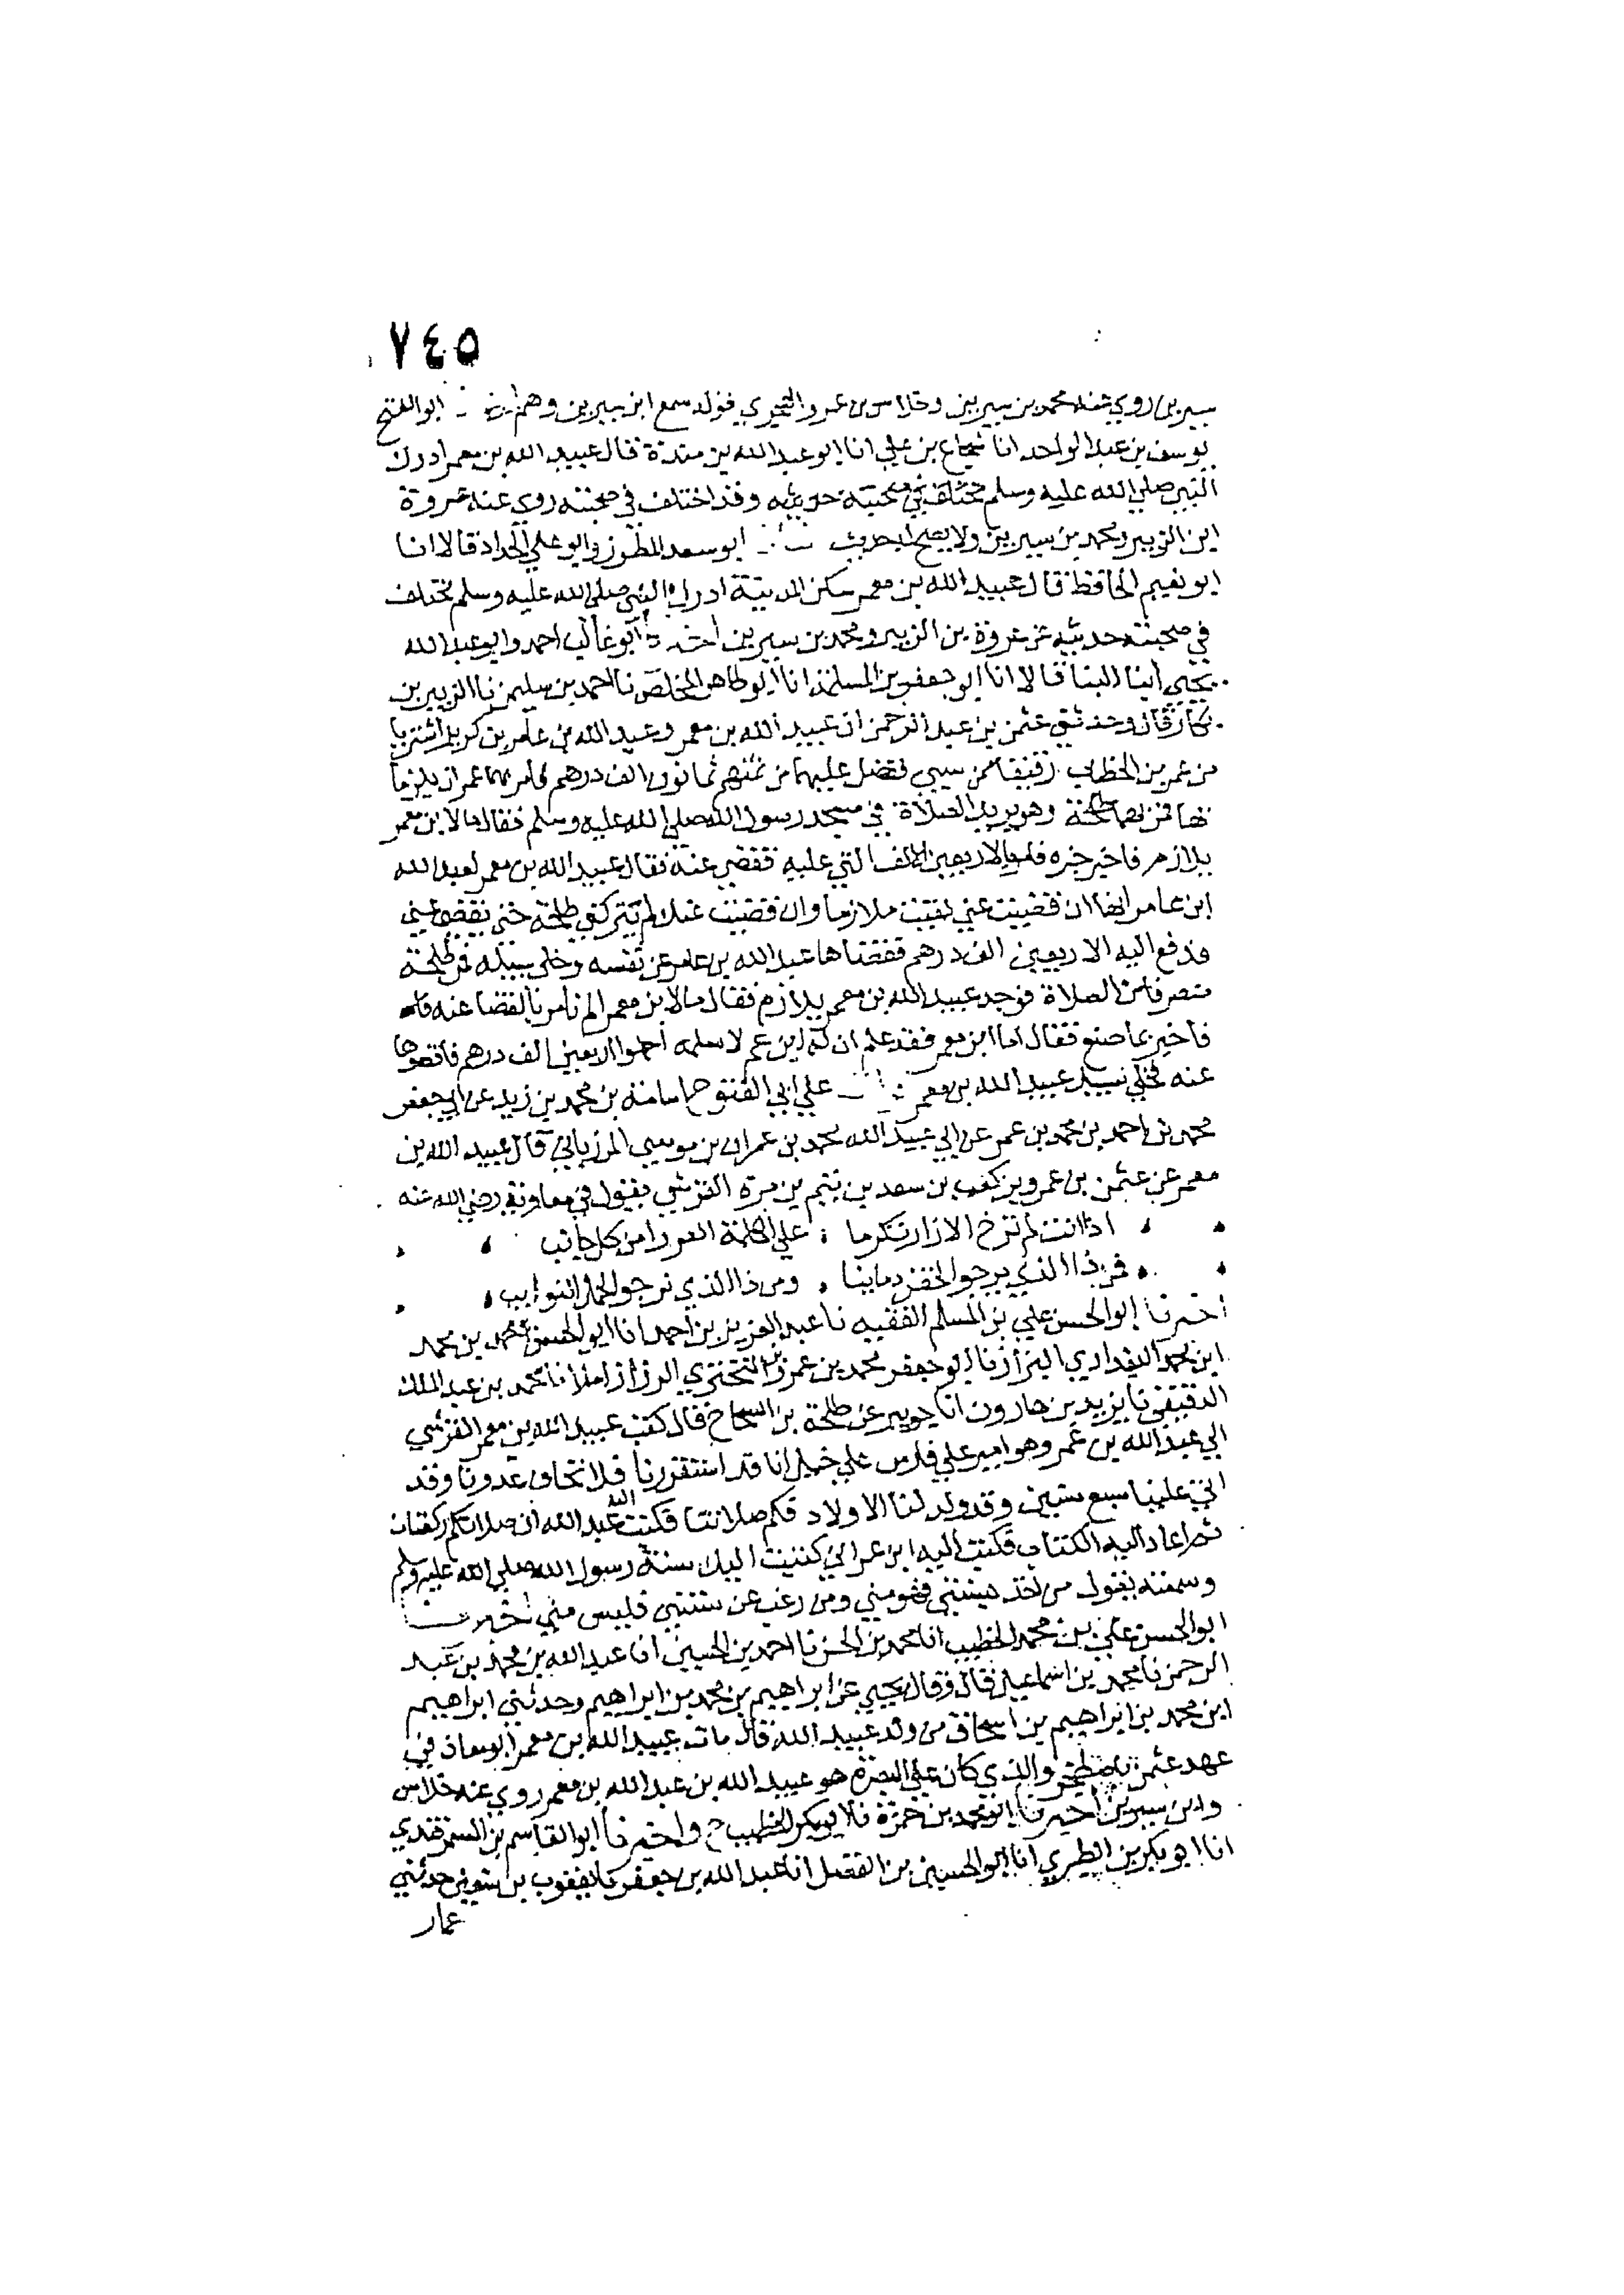 ٧٤٥
سيرين روي عنه محمد بن سيرين وخلاس بن عمرو الهجري قوله سمع ابن سيرين وهم ابو الفتح
يوسف بن عبد الواحد انا شجاع بن علي انا ابو عبد الله بن مندة قال عبيد الله بن معمر ادرك
النبي صلي الله عليه وسلم مختلف في صحبته حديثه وقد اختلف في صحبته روي عنه عروة
ابن الزبير ومحمد بن سيرين ولا يصح له حديث ابو سعد المطرز وابو علي الحداد قالا انا
ابو نعيم الحافظ قال عبيد الله بن معمر سكن المدينة ادرك النبي صلي الله عليه وسلم مختلف
في صحبته حديثه عن عروة بن الزبير ومحمد بن سيرين ابو غالب احمد وابو عبد الله
يحيي ابنا البنا قالا انا ابو جعفر بن المسلمة انا ابو طاهر المخلص نا احمد بن سليمن نا الزبير بن
بكار قال وحدثني عثمن بن عبد الرحمن ان عبيد الله بن معمر وعبد الله بن عامر بن كريز اشتريا
من عمر بن الخطاب رقيقا من سبي ففضل عليهما من ثمنهم ثمانون الف درهم فامر بهما عمر ان يلزما
بها فمر بهما طلحة وهو يريد الصلاة في مسجد رسول الله صلي الله عليه وسلم فقال ما لابن معمر
يلازم فاخبر خبره فامر بالاربعين الالف التي عليه فقضي عنه فقال عبيد الله بن معمر لعبد الله
ابن عامر انها ان قضيت عني بقيت ملازما وان قضيت عنك لم يتركني طلحة حتي يقضي عني
فدفع اليه الاربعين الف درهم فقضاها عبد الله بن عامر عن نفسه وخلي سبيله فمر طلحة
منصرفا من الصلاة فوجد عبيد الله بن معمر يلازم فقال ما لابن معمر الم نامر بالقضا عنه
فاخبر بما صنع فقال اما ابن معمر فقد علم ان له ابن عم لا يسلمه احملوا اربعين الف درهم فاقضوها
عنه فخلي سبيل عبيد الله بن معمر علي ابي الفتوح اسامة بن محمد بن زيد عن ابي جعفر
محمد بن احمد بن محمد بن عمر عن ابي عبيد الله محمد بن عمران بن موسي المرزباني قال عبيد الله بن
معمر عن عثمن بن عمرو بن كعب بن سعد بن تيم بن مرة القرشي يقول في معاوية رضي الله عنه
اذا انت لم ترخ الازار تكرما علي الكلمة العورا من كل جانب
فمن ذا الذي يرجو لحقن دماينا ومن ذا الذي نرجو لحمل النوايب
اخبرنا ابو الحسن علي بن المسلم الفقيه نا عبد العزيز بن احمد انا ابو الحسن محمد بن محمد
ابن محمد البغدادي البزاز نا ابو جعفر محمد بن عمرو بن البختري الرزاز املا نا محمد بن عبد الملك
الدقيقي نا يزيد بن هارون انا جويبر عن طلحة بن السحاح قال كتب عبيد الله بن معمر القرشي
الي عبد الله بن عمر وهو امير علي فارس علي خيل انا قد استقررنا فلا نخاف عدونا وقد
اتي علينا سبع سنين وقد ولد لنا الاولاد فكم صلاتنا فكتب اليه عبد الله ان صلاتكم ركعتان
ثم اعاد اليه الكتاب فكتب اليه ابن عمر اني كتبت اليك بسنة رسول الله صلي الله عليه وسلم
وسمعته يقول من اخذ بسنتي فهو مني ومن رغب عن سنتي فليس مني اخبرنا
ابو الحسن علي بن محمد الخطيب انا محمد بن الحسن نا احمد بن الحسين انا عبد الله بن محمد بن عبد
الرحمن نا محمد بن اسماعيل قال وقال يحيي عن ابراهيم بن محمد بن ابراهيم وحدثني ابراهيم
ابن محمد بن ابراهيم بن اسحاق من ولد عبيد الله قال مات عبيد الله بن معمر ابو معاذ في
عهد عثمن باصطخر والذي كان علي البصرة هو عبيد الله بن عبد الله بن معمر روي عنه خلاس
وابن سيرين اخبرنا ابو محمد بن حمزة نا ابو بكر الخطيب ح واخبرنا ابو القاسم بن السمرقندي
انا ابو بكر بن الطبري انا ابو الحسين بن الفضل انا عبد الله بن جعفر نا يعقوب بن سفين حدثني
عمار